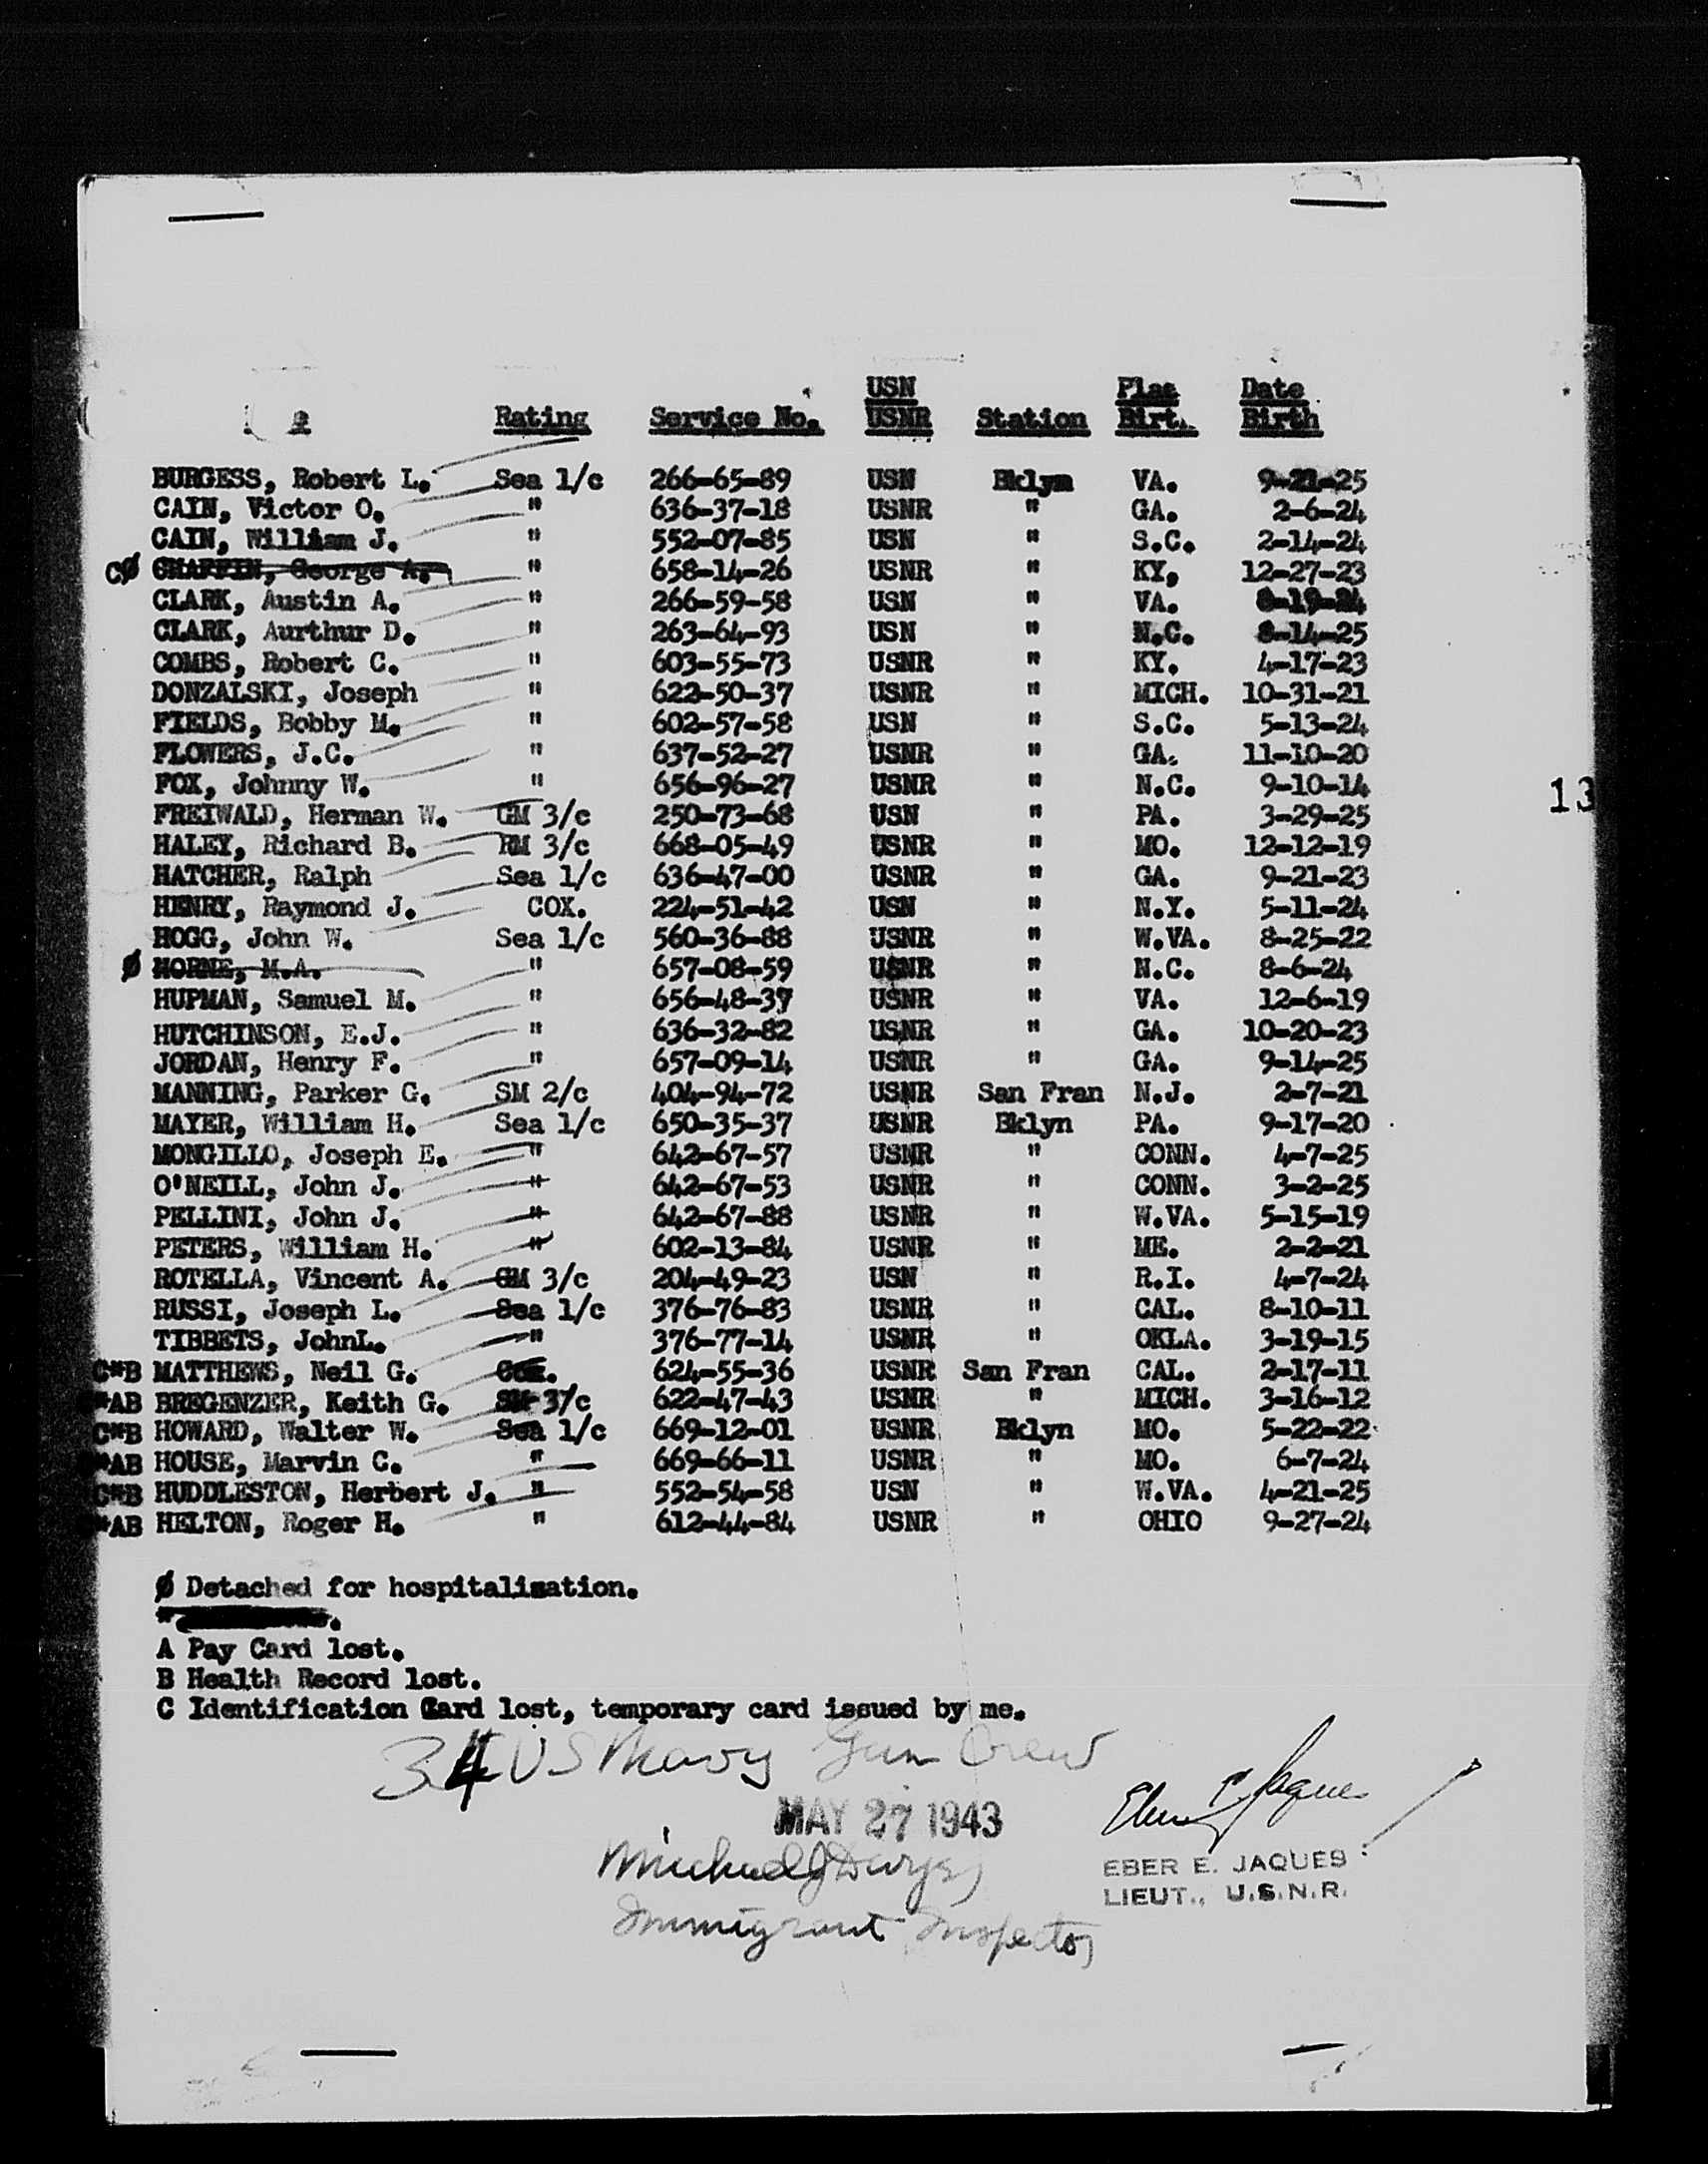 USN Plac Date
Rating Service No. USNR Station Birt. Birth
BURGESS, Robert L. Sea 1/c 266-65-89 USN Bklyn VA. 9-21-25
CAIN, Victor O. " 636-37-18 USNR " GA. 2-6-24
CAIN, William J. " 552-07-85 USN " S.C. 2-14-24
CØ CHAFFIN, George A. " 658-14-26 USNR " KY, 12-27-23
CLARK, Austin A. " 266-59-58 USN " VA. 8-19-24
CLARK, Aurthur D. " 263-64-93 USN " N.C. 8-14-25
COMBS, Robert C. " 603-55-73 USNR " KY. 4-17-23
DONZALSKI, Joseph " 622-50-37 USNR " MICH. 10-31-21
FIELDS, Bobby M. " 602-57-58 USN " S.C. 5-13-24
FLOWERS, J.C. " 637-52-27 USNR " GA. 11-10-20
FOX, Johnny W. " 656-96-27 USNR " N.C. 9-10-14
13
FREIWALD, Herman W. GM 3/c 250-73-68 USN " PA. 3-29-25
HALEY, Richard B. RM 3/c 668-05-49 USNR " MO. 12-12-19
HATCHER, Ralph Sea 1/c 636-47-00 USNR " GA. 9-21-23
HENRY, Raymond J. COX. 224-51-42 USN " N.Y. 5-11-24
HOGG, John W. Sea 1/c 560-36-88 USNR " W.VA. 8-25-22
Ø HORNE, M.A. " 657-08-59 USNR " N.C. 8-6-24
HUPMAN, Samuel M. " 656-48-37 USNR " VA. 12-6-19
HUTCHINSON, E.J. " 636-32-82 USNR " GA. 10-20-23
JORDAN, Henry F. " 657-09-14 USNR " GA. 9-14-25
MANNING, Parker G. SM 2/c 404-94-72 USNR San Fran N.J. 2-7-21
MAYER, William H. Sea 1/c 650-35-37 USNR Bklyn PA. 9-17-20
MONGILLO, Joseph E. " 642-67-57 USNR " CONN. 4-7-25
O'NEILL, John J. " 642-67-53 USNR " CONN. 3-2-25
PELLINI, John J. " 642-67-88 USNR " W.VA. 5-15-19
PETERS, William H. " 602-13-84 USNR " ME. 2-2-21
ROTELLA, Vincent A. GM 3/c 204-49-23 USN " R.I. 4-7-24
RUSSI, Joseph L. Sea 1/c 376-76-83 USNR " CAL. 8-10-11
TIBBETS, JohnL. " 376-77-14 USNR " OKLA. 3-19-15
C*B MATTHEWS, Neil G. Cox. 624-55-36 USNR San Fran CAL. 2-17-11
*AB BREGENZER, Keith G. SM 3/c 622-47-43 USNR " MICH. 3-16-12
C*B HOWARD, Walter W. Sea 1/c 669-12-01 USNR Bklyn MO. 5-22-22
*AB HOUSE, Marvin C. " 669-66-11 USNR " MO. 6-7-24
C*B HUDDLESTON, Herbert J. " 552-54-58 USN " W.VA. 4-21-25
*AB HELTON, Roger H. " 612-44-84 USNR " OHIO 9-27-24
Ø Detached for hospitalization.
*
A Pay Card lost.
B Health Record lost.
C Identification Card lost, temporary card issued by me.
34 US Navy Gun Crew
MAY 27 1943
Eber E. Jaques
Michael J
EBER E. JAQUES
LIEUT., U.S.N.R.
Immigrant Inspector